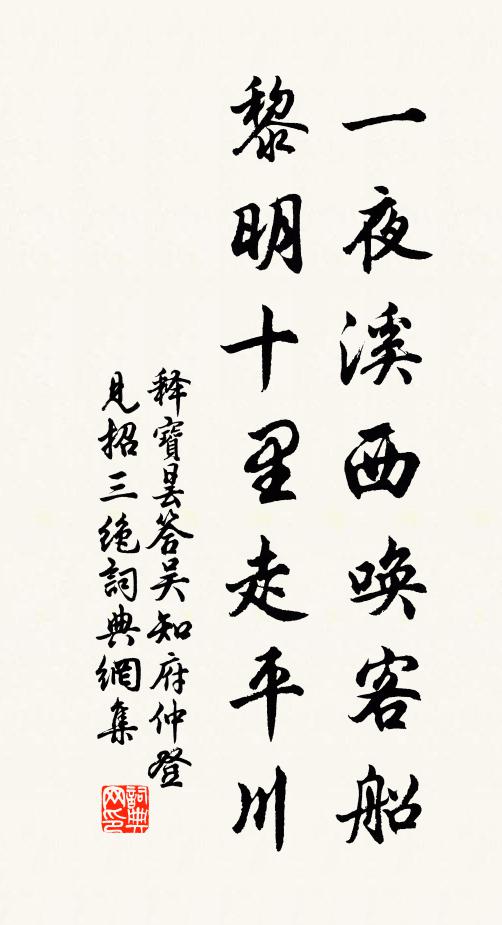 一夜溪西唤客船
黎明十里走平川
释寶昙答吴知府仲登
見招三绝詞典網集
詞典网印